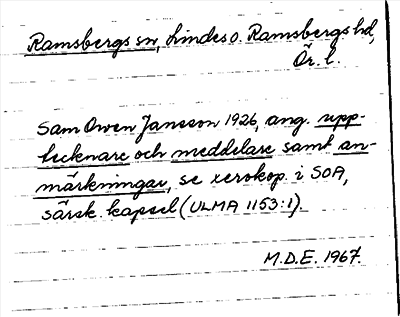 Ramsbergs sn, Lindes o. Ramsbergs hd,
Ör. l.
Sam Owen Jansson 1926, ang. upp-
tecknare och meddelare samt an-
märkningar, se xerokop. i SOA,
särsk. kapsel (ULMA 1153:1).
M.D.E. 1967.